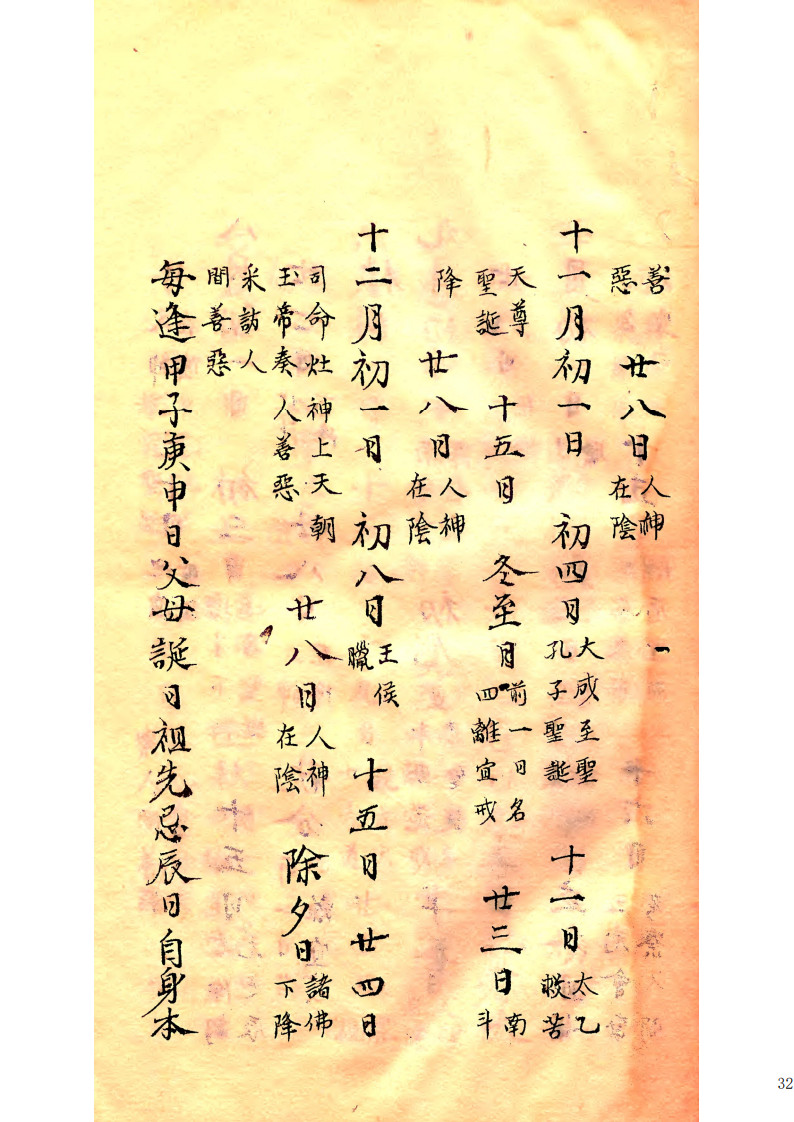 善惡 廿八日 人神在陰
十一月初一日 初四日 大成至聖孔子聖誕 十一日 太乙救苦
天尊聖誕 十五日 冬至日 前一日名四離宜戒 廿三日 南斗
降 廿八日 人神在陰
十二月初一日 初八日 王侯臘 十五日 廿四日
司命灶神上天朝玉帝奏人善惡 廿八日 人神在陰 除夕日 諸佛下降
采訪人間善惡
每逢甲子庚申日父母誕日祖先忌辰日自身本
32